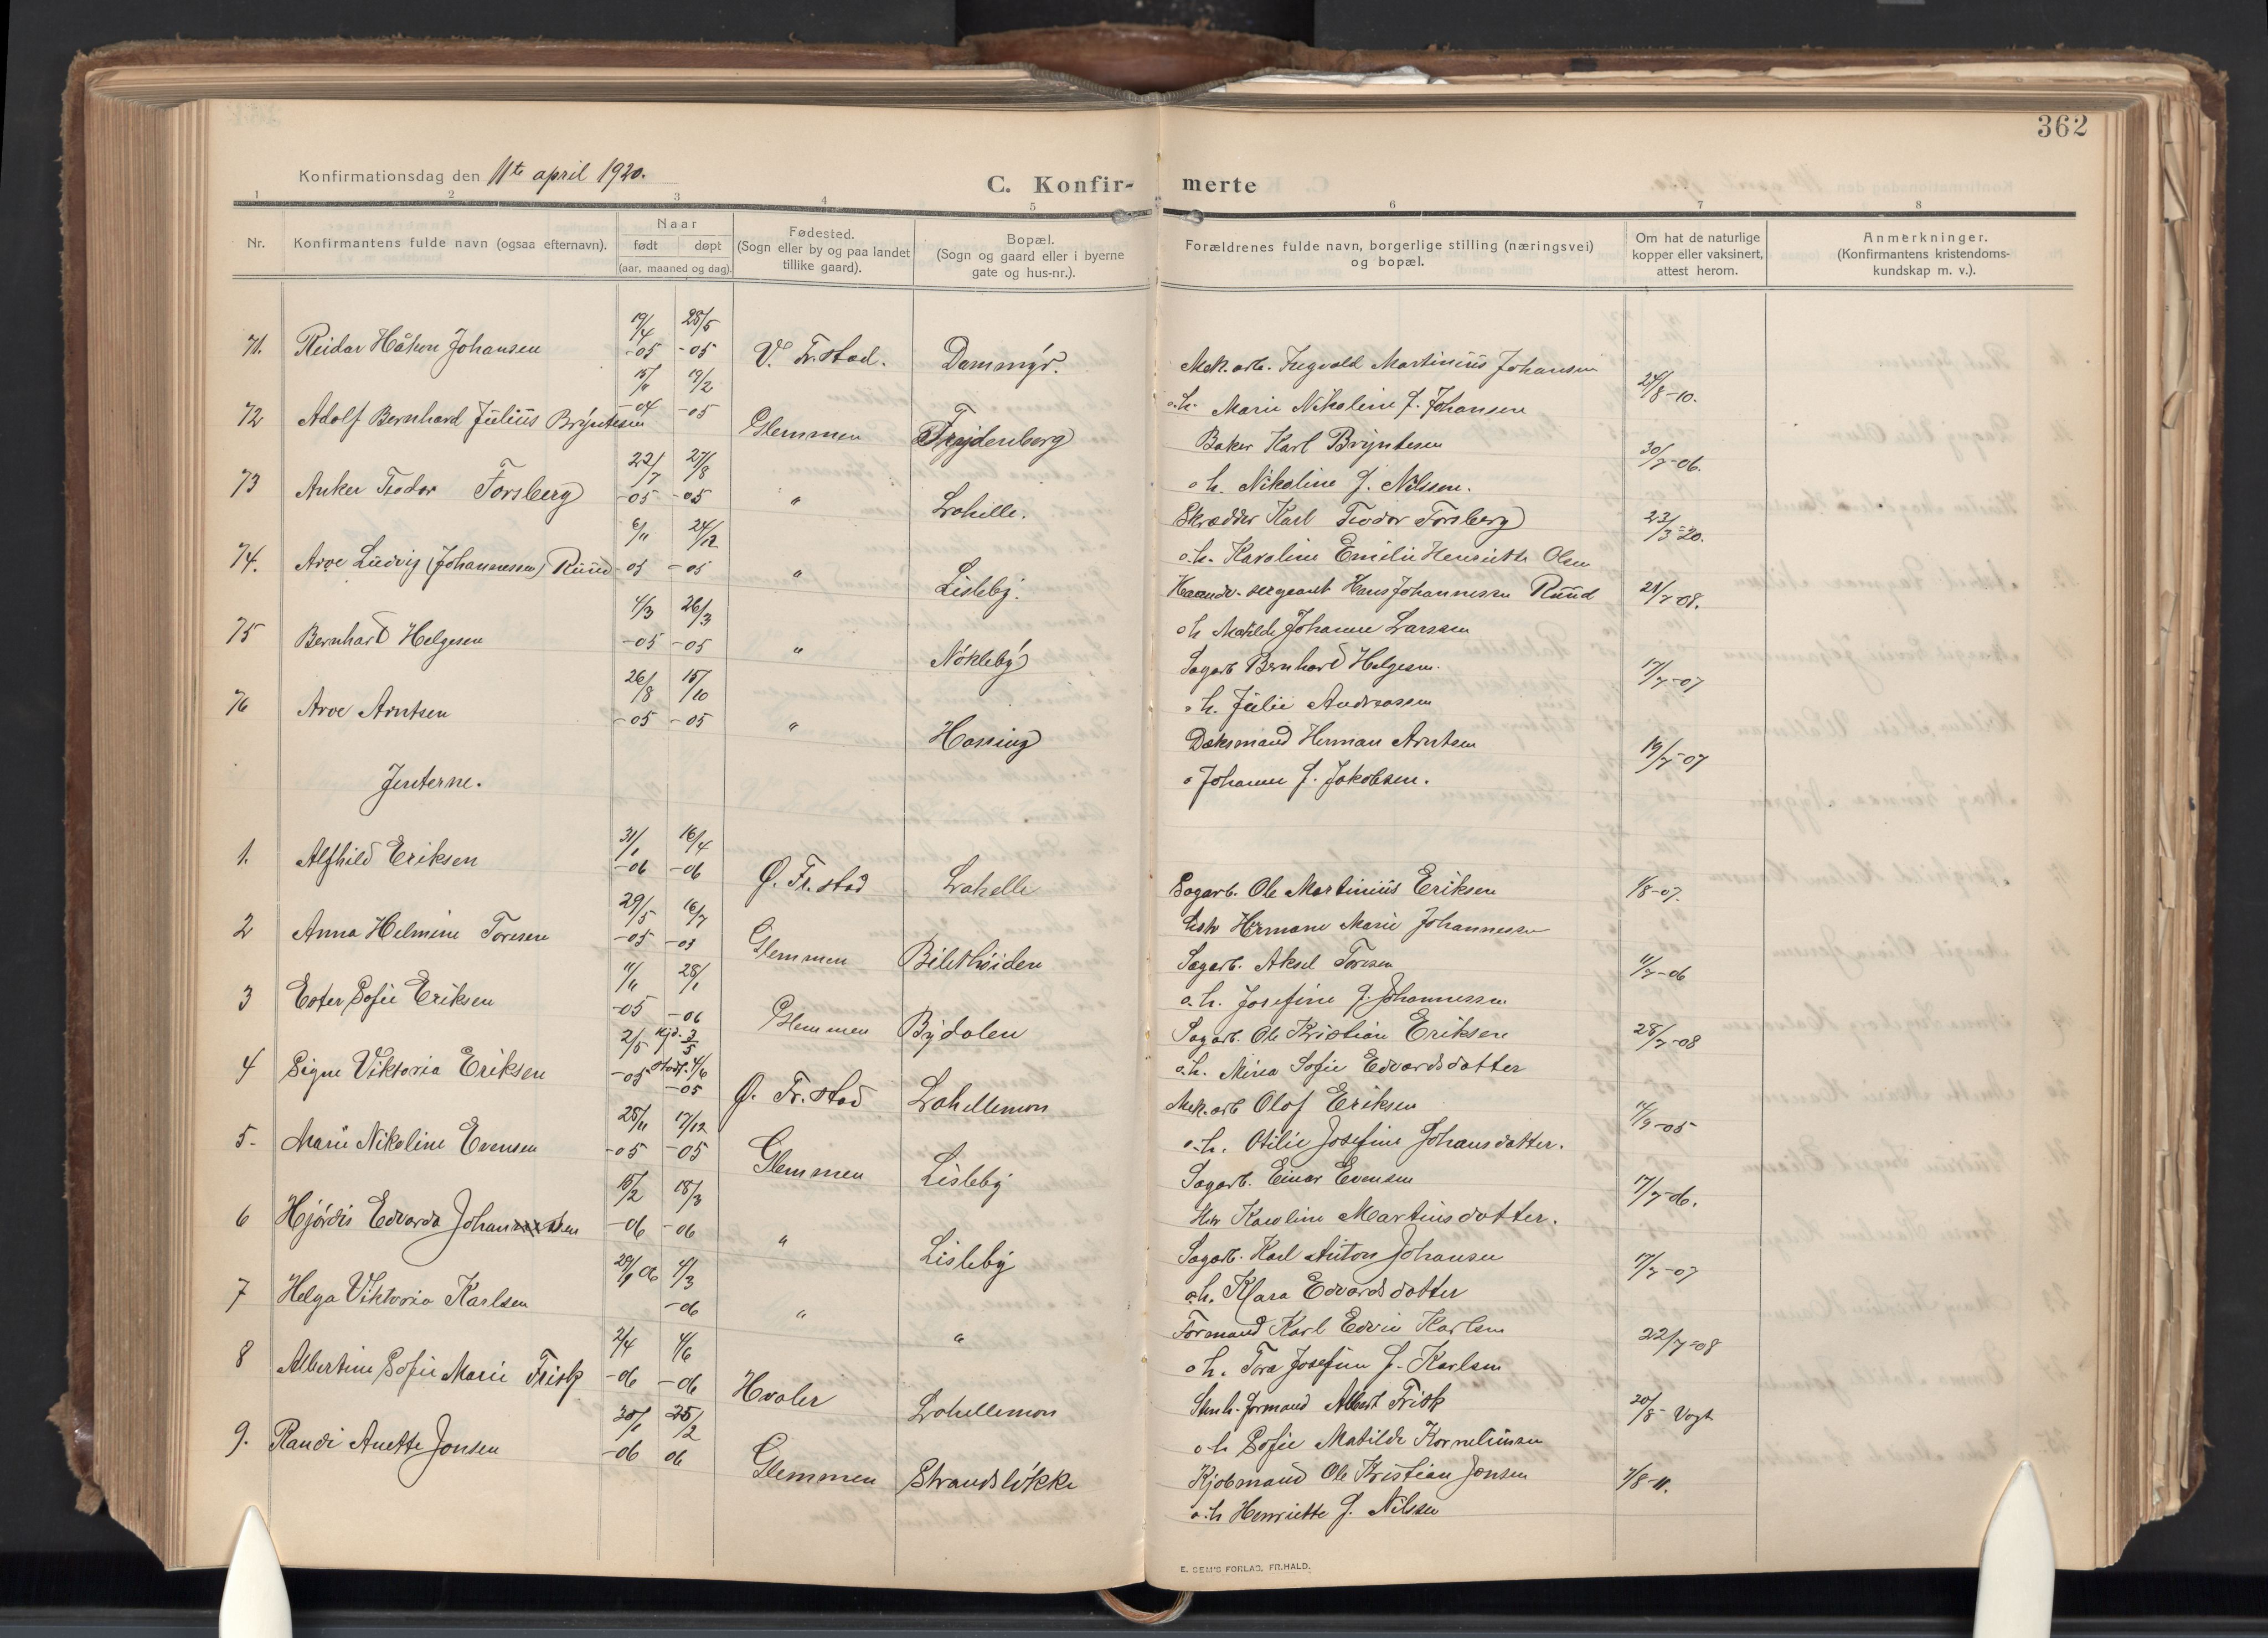 362
Konfirmationsdag den 11te april 1920.
C. Konfir- merte
1 2 3 4 5 6 7 8
Nr.
Konfirmantens fulde navn (ogsaa efternavn).
Naar
født døpt
(aar, maaned og dag).
Fødested.
(Sogn eller by og paa landet
tillike gaard).
Bopæl.
(Sogn og gaard eller i byerne
gate og hus-nr.).
Forældrenes fulde navn, borgerlige stilling (næringsvei)
og bopæl.
Om hat de naturlige
kopper eller vaksinert,
attest herom.
Anmerkninger.
(Konfirmantens kristendoms-
kundskap m. v.).
71. Reidar Håkon Johansen 19/4 -05 28/5 -05 V. Fr.stad. Dammyr. Mek. arb. Ingvald Martinius Johansen
o.h. Marie Nikoline f. Johansen 24/8-10.
72 Adolf Bernhard Julius Bryntesen 15/11 -04 19/2 -05 Glemmen Frydenberg Baker Karl Bryntesen
o h. Nikoline f. Nilssen. 30/7-06.
73 Anker Teodor Forsberg 22/7 -05 27/8 -05 " Lahelle. Skrædder Karl Teodor Forsberg
o.h. Karoline Emilie Henriette Olsen 23/3-20.
74. Arve Ludvig (Johannessen) Ruud 6/11 -05 24/12 -05 " Lisleby. sergeant Hans Johannessen Ruud
o h Matilde Johanne Larssen 21/7-08.
75 Bernhard Helgesen 4/3 -05 26/3 -05 " Nøkleby Sagarb Bernhard Helgesen.
o h. Julie Andreassen 17/7-07
76 Arve Arntsen 26/8 -05 15/10 -05 " Hassing Dæksmand Herman Arntsen
o Johanne f. Jakobsen. 19/7-07
Jenterne.
1. Alfhild Eriksen 31/1 -06 16/4 -06 Ø. Fr.stad Lahelle Sagarb. Ole Martinius Eriksen
Hermane Marie Johannessen 1/8-07.
2 Anna Helmine Toresen 29/5 -05 16/7 -05 Glemmen Biletthøiden Sagarb. Aksel Toresen
o.h. Josefine f. Johannessen 11/7-06
3 Ester Sofie Eriksen 11/11 -05 28/1 -06 Glemmen Bydalen Sagarb. Ole Kristian Eriksen
o.h. Mina Sofie Edvardsdatter 28/7-08
4 Signe Viktoria Eriksen 2/5 -05 Hjd. 3/5 Stadf. 4/6 -05 Ø. Fr.stad Lahellemon Mek. arb Olof Eriksen
o.h. Otilie Josefine Johansdatter. 14/9-05
5. Marie Nikoline Evensen 25/11 -05 17/12 -05 Glemmen Lisleby Sagarb. Einar Evensen
Karoline Martinsdatter. 17/7-06.
6 Hjørdis Edvarda Johansen 15/2 -06 18/3 -06 " Lisleby Sagarb. Karl Anton Johansen
o.h. Klara Edvardsdatter 17/7-07
7 Helga Viktoria Karlsen 29/1 06 4/3 -06 " " Formand Karl Edvin Karlsen
o h. Tora Josefine f. Karlsen 22/7-08
8 Albertine Sofie Marie Frisk 2/4 -06 4/6 -06 Hvaler Lahellemon Stenh. formand Albert Frisk
o h Sofie Matilde Korneliussen 20/8- Vogt
9. Randi Anette Jonsen 30/1 -06 25/2 06 Glemmen Strandsløkke Kjøbmand Ole Kristian Jonsen
o.h Henriette f. Nilsen 7/8-11.
E. SEM'S FORLAG, FR.HALD.